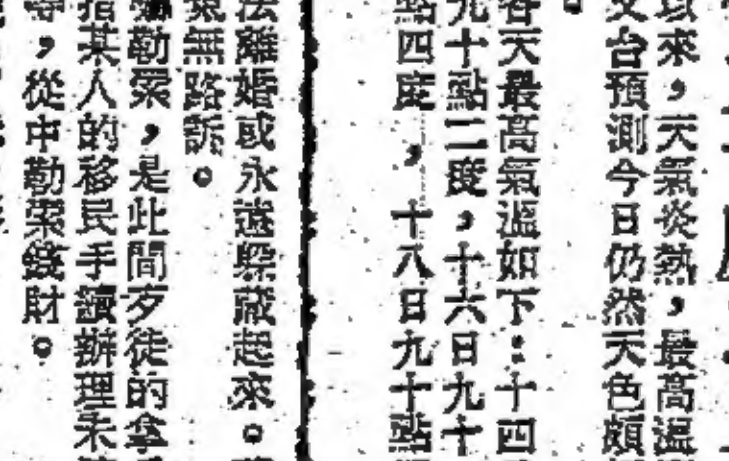 以來，天氣炎熱，最高溫
文台預測今日仍然天色頗
。
各天最高氣溫如下：十四
九十點二度，十六日九十
點四度，十八日九十點
法離婚或永遠躲藏起來。
冤無路訴。
勒索，是此間歹徒的拿
指某人的移民手續辦理未
等，從中勒索錢財。